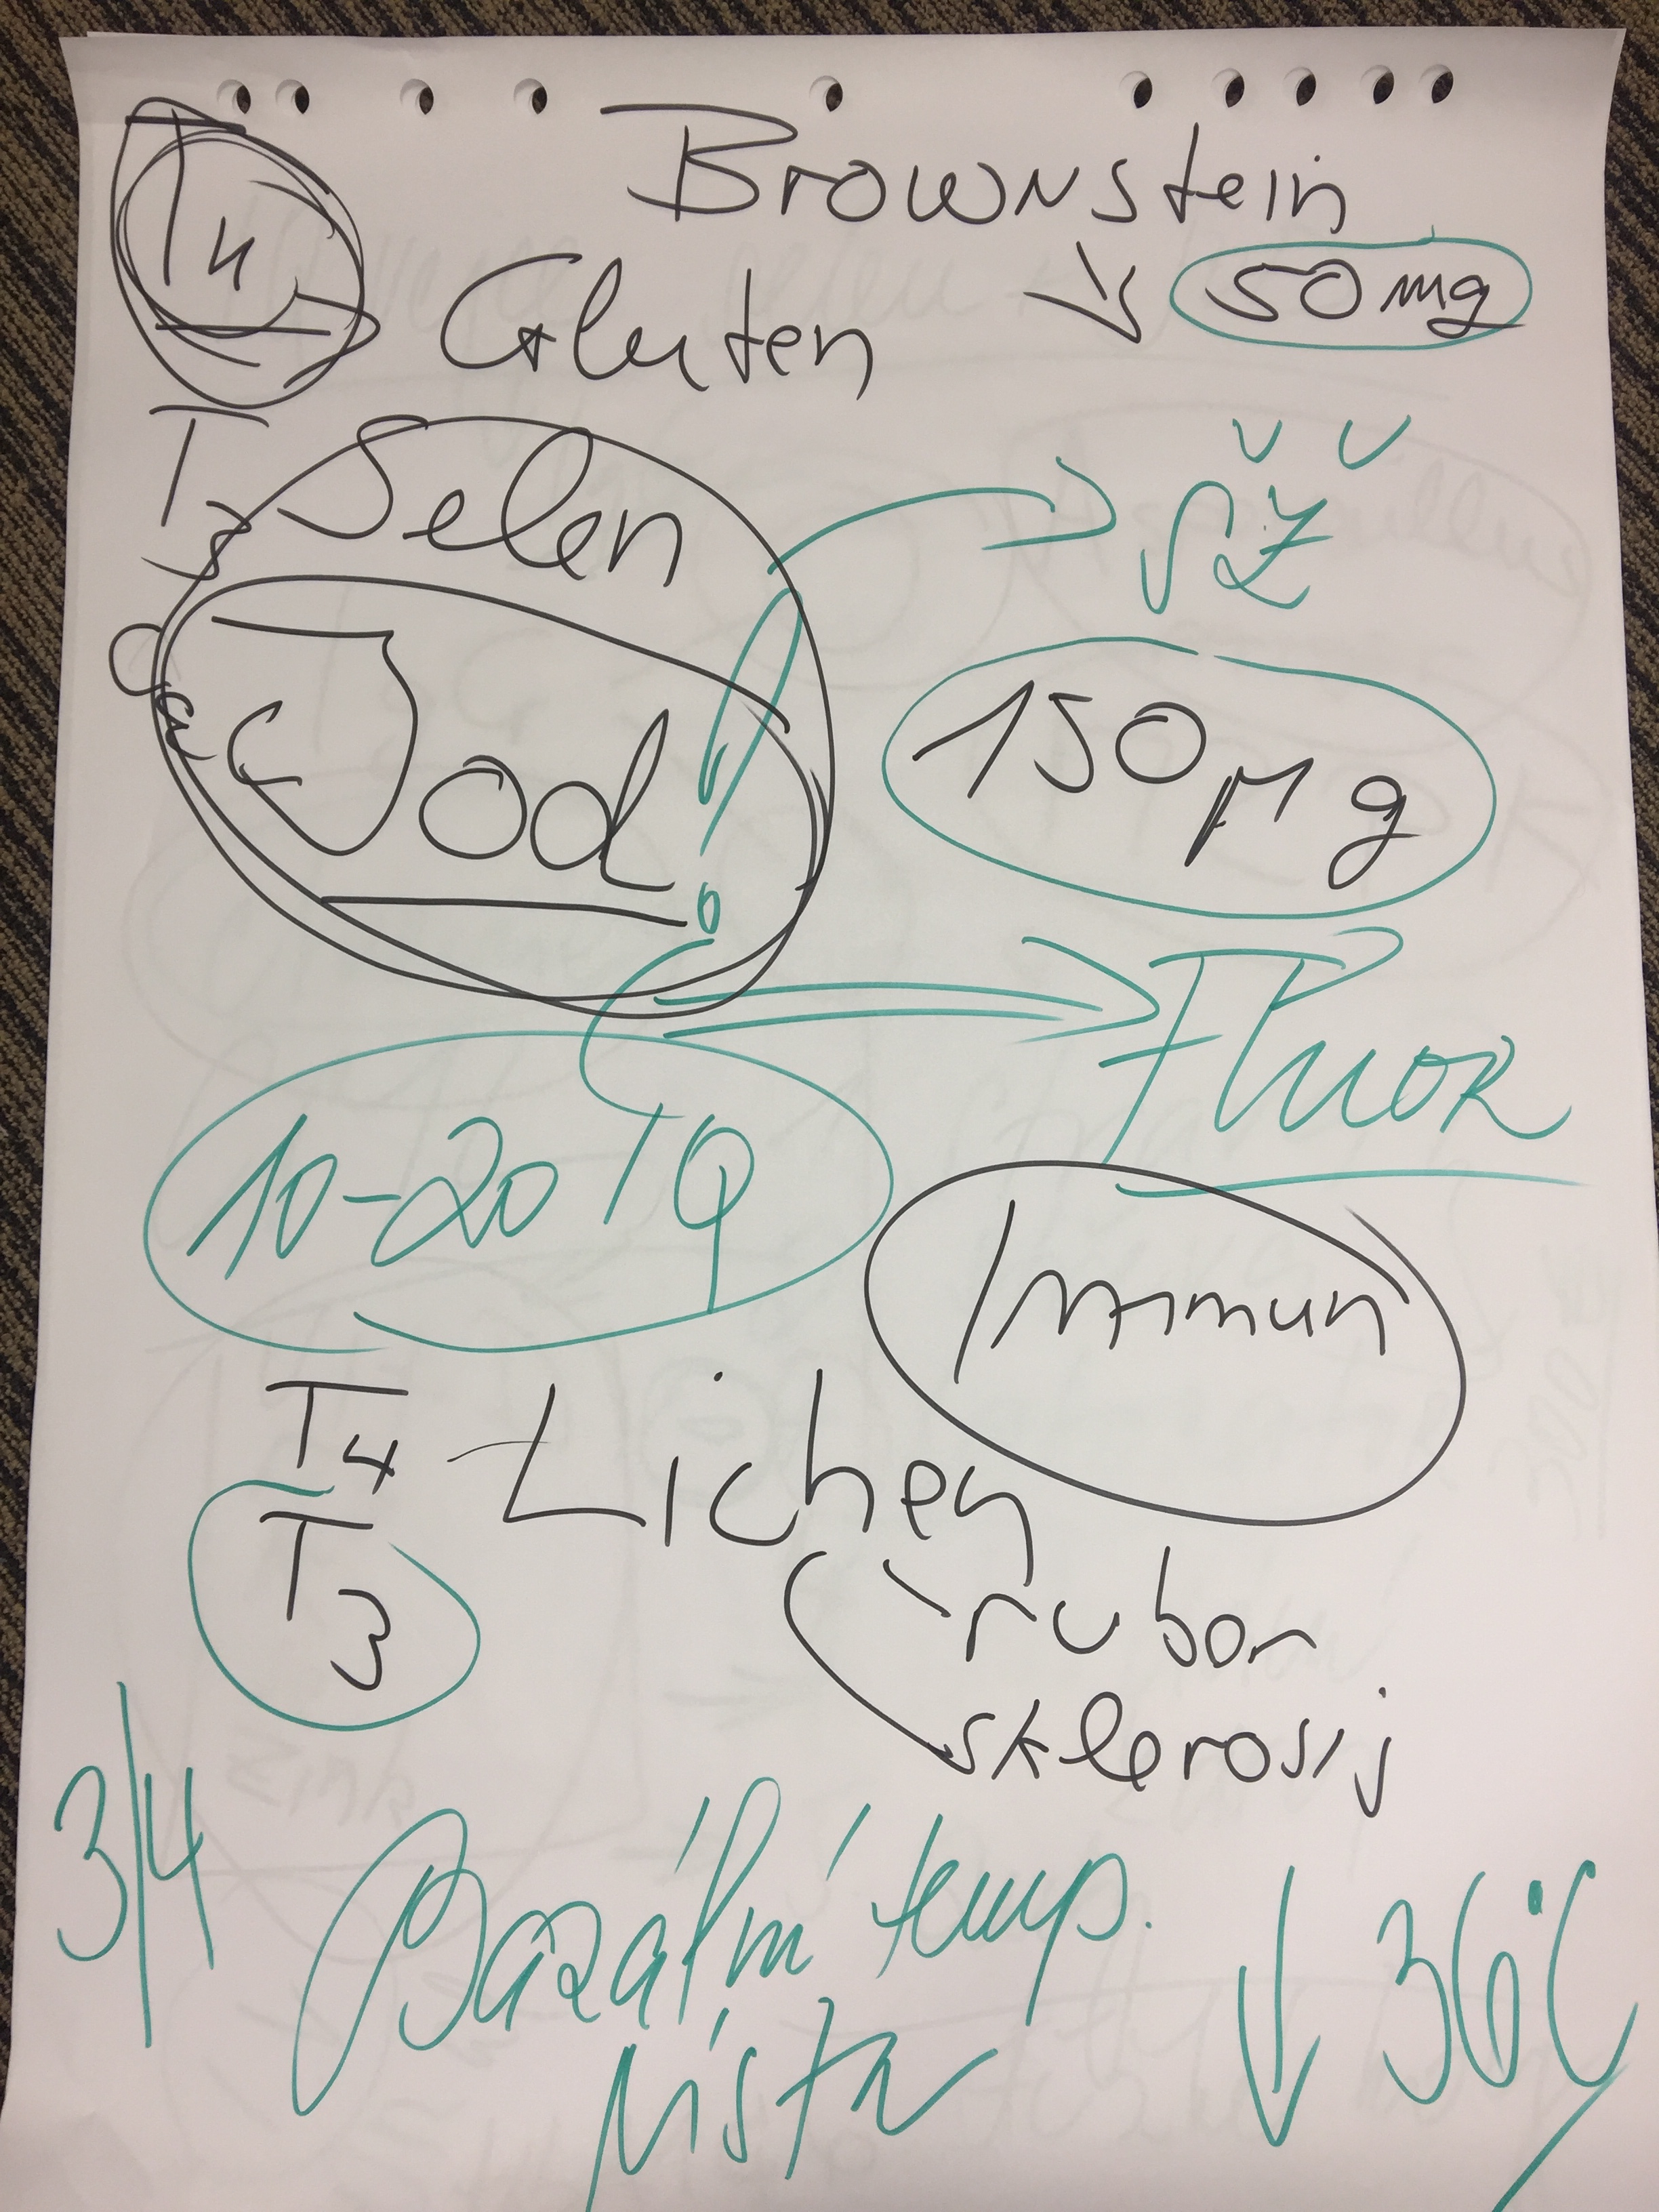 T4 Brownstein
Gluten 50 mg
T3 Selen ŠŽ
Jod ! 150 µg
Fluor
10-20 IQ
Immun
T4 Lichen
T3 ruber
sklerosij
3/4 Bazální temp. ↓ 36°C
nízka